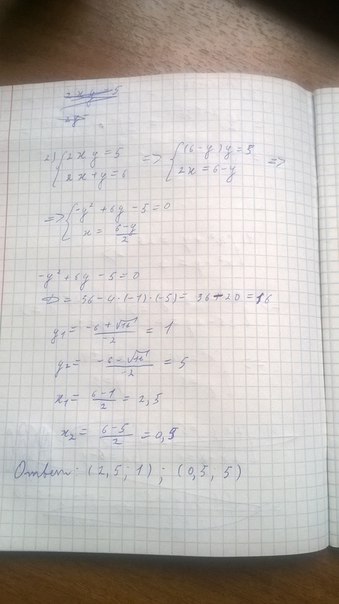 2) { 2xy = 5 => { (6-y)y = 5 =>
2x+y=6 2x = 6-y
=> { -y² + 6y - 5 = 0
x = (6-y)/2
-y² + 6y - 5 = 0
D = 36 - 4·(-1)·(-5) = 36 - 20 = 16
y₁ = (-6+√16)/-2 = 1
y₂ = (-6-√16)/-2 = 5
x₁ = (6-1)/2 = 2,5
x₂ = (6-5)/2 = 0,5
Ответ: (2,5; 1); (0,5; 5)